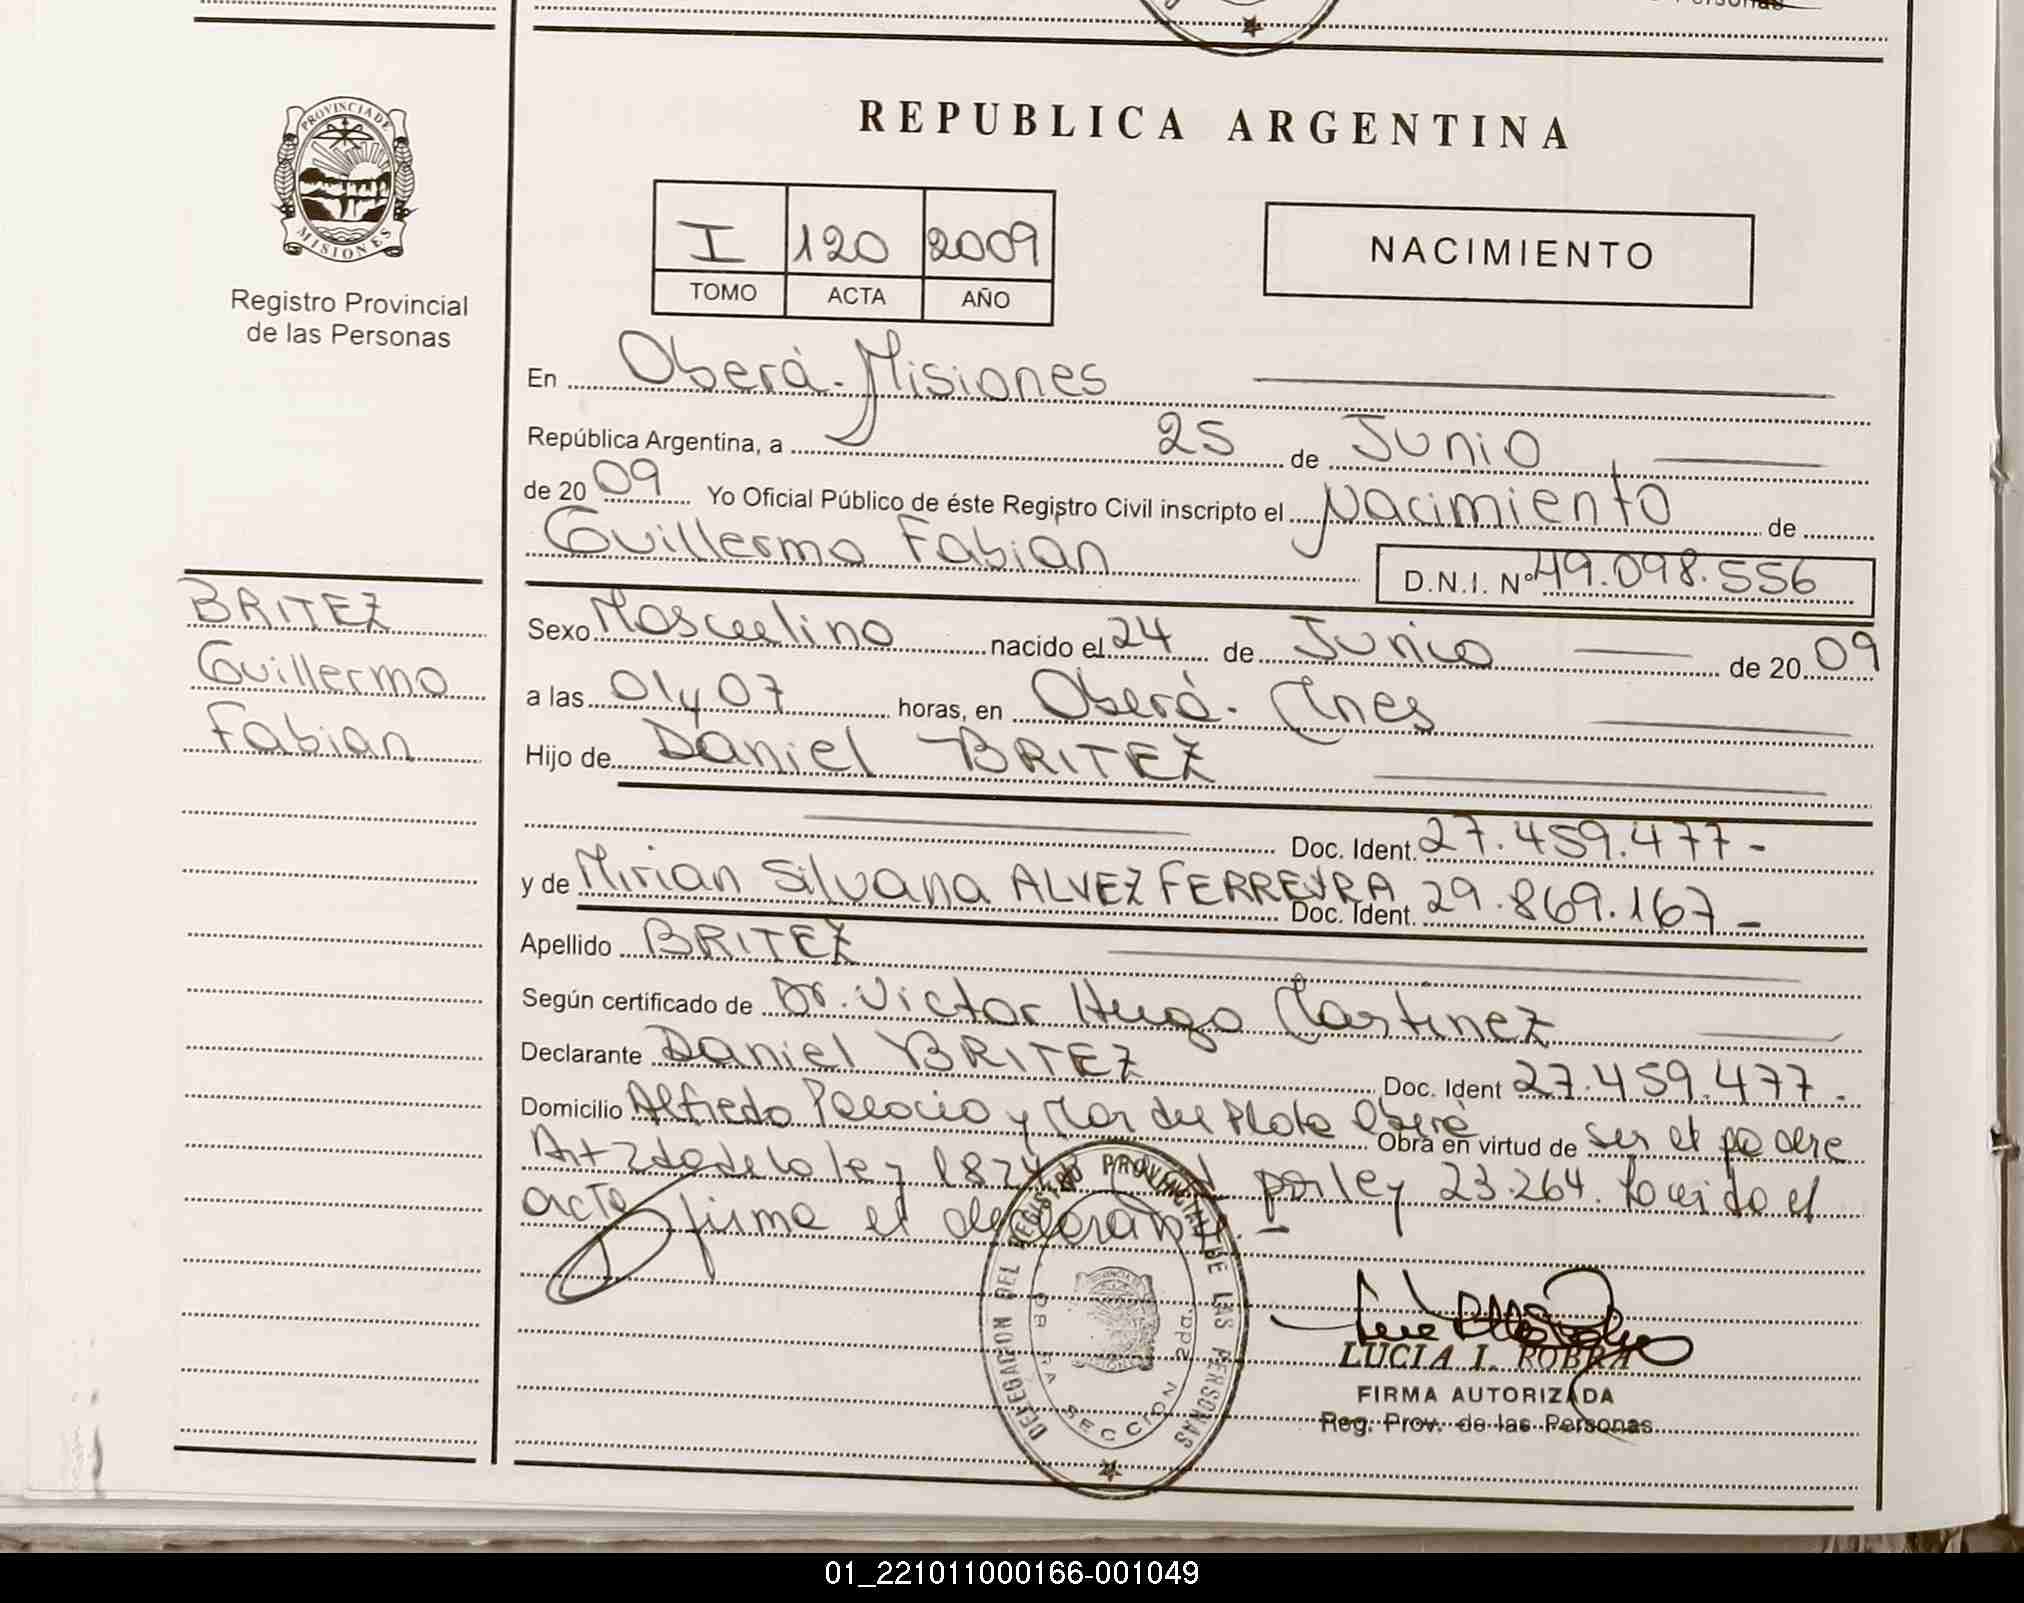 REPUBLICA ARGENTINA
PROVINCIA DE
MISIONES
Registro Provincial
de las Personas
I 120 2009
TOMO ACTA AÑO
NACIMIENTO
En Oberá - Misiones
República Argentina, a 25 de Junio
de 2009 Yo Oficial Público de éste Registro Civil inscripto el Nacimiento de
Guillermo Fabian D.N.I. Nº 49.098.556
BRITEZ
Guillermo
Fabian
Sexo Masculino nacido el 24 de Junio de 2009
a las 01 y 07 horas, en Oberá - Mnes
Hijo de Daniel BRITEZ
Doc. Ident. 27.459.477-
y de Mirian Silvana ALVEZ FERREYRA Doc. Ident. 29.869.167-
Apellido BRITEZ
Según certificado de Dr. Victor Hugo Martinez
Declarante Daniel BRITEZ Doc. Ident 27.459.477.
Domicilio Alfredo Palacio y Mar del Plata Oberá Obra en virtud de ser el padre
Art 2do de la ley por ley 23.264. Leido el
acta firma el declarante.
DELEGACION DEL REGISTRO PROVINCIAL DE LAS PERSONAS
SECCION 2da.
LUCIA I. ROBRA
FIRMA AUTORIZADA
Reg. Prov. de las Personas
01_221011000166-001049